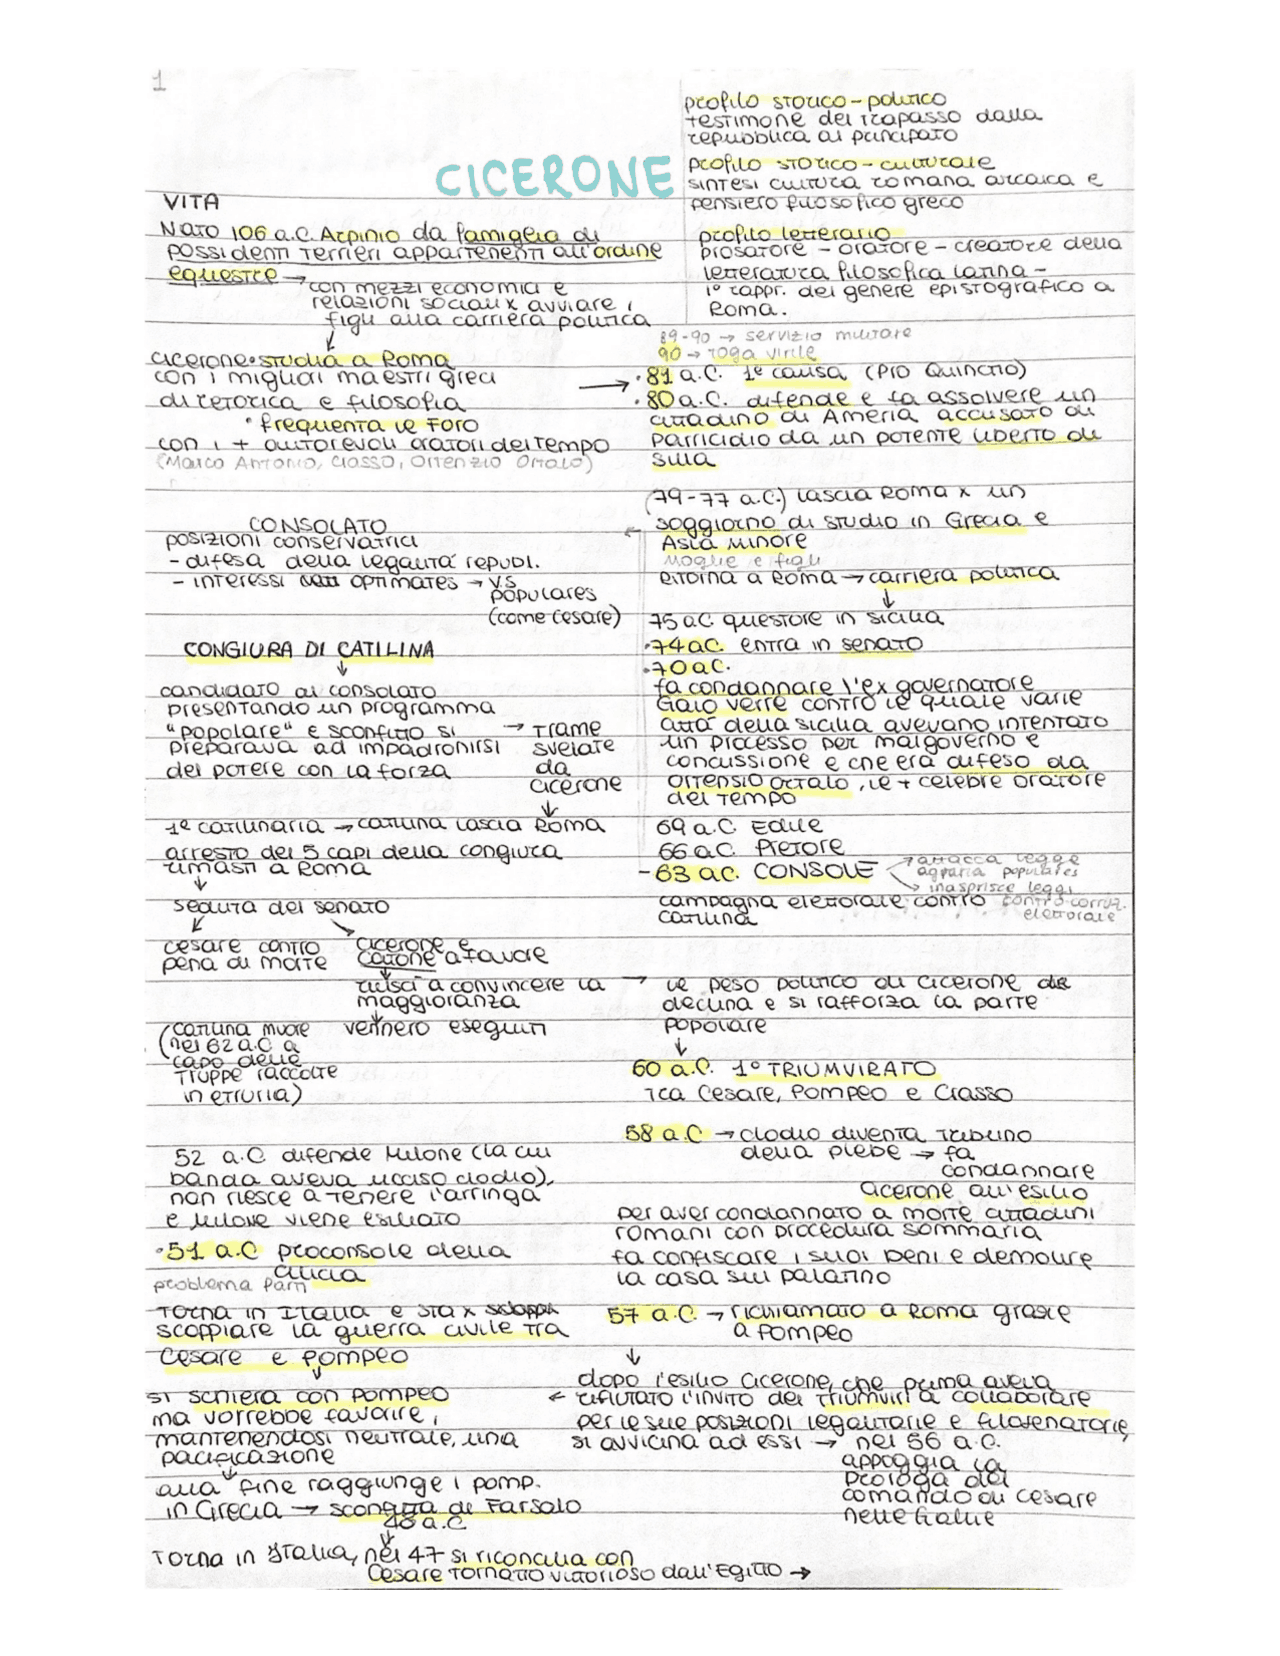 1
profilo storico-politico
testimone del trapasso dalla
repubblica al principato
profilo storico-culturale
sintesi cultura romana arcaica e
pensiero filosofico greco
profilo letterario
prosatore - oratore - creatore della
letteratura filosofica latina -
1° rappr. del genere epistografico a
Roma.
CICERONE
VITA
Nato 106 a.C. Arpinio da famiglia di
possidenti terrieri appartenenti all'ordine
equestre →
con mezzi economici e
relazioni sociali x avviare i
figli alla carriera politica
↓
cicerone • studia a Roma
con i migliori maestri greci
di retorica e filosofia
• frequenta le Foro
con i + autorevoli oratori del tempo
(Marco Antonio, Crasso, Ortenzio Ortalo)
89-90 → servizio militare
90 → toga virile
→ • 81 a.C. 1° causa (Pro Quinctio)
• 80 a.C. difende e fa assolvere un
cittadino di Ameria accusato di
parricidio da un potente liberto di
Silla
(79-77 a.C.) lascia Roma x un
← soggiorno di studio in Grecia e
Asia Minore
Moglie e figli
ritorna a Roma → carriera politica
↓
75 a.C questore in Sicilia
• 74 a.C. entra in senato
• 70 a.C.
fa condannare l'ex governatore
Gaio Verre contro le quale varie
città della Sicilia avevano intentato
un processo per malgoverno e
concussione e che era difeso da
Ortensio Ortalo, le + celebre oratore
del tempo
69 a.C. Edile
66 a.C. Pretore
- 63 a.C. CONSOLE
→ attacca legge
agraria populares
→ inasprisce leggi
contro corruz.
elettorale
campagna elettorale contro
Catilina
CONSOLATO
posizioni conservatrici
- difesa della legalità republ.
- interessi optimates → v.s
populares
(come Cesare)
CONGIURA DI CATILINA
↓
candidato al consolato
presentando un programma
"popolare" e sconfitto si
preparava ad impadronirsi
del potere con la forza
→ trame
svelate
da
cicerone
↓
1° catilinaria → catilina lascia Roma
arresto dei 5 capi della congiura
rimasti a Roma
↓
seduta del senato
cesare contro
pena di morte
cicerone e
catone a favore
↓
riuscì a convincere la
maggioranza
↓
vennero eseguiti
(catilina muore
nel 62 a.C a
capo delle
truppe raccolte
in etruria)
→ le peso politico di cicerone
declina e si rafforza la parte
popolare
↓
60 a.C. 1° TRIUMVIRATO
tra Cesare, Pompeo e Crasso
58 a.C → clodio diventa tribuno
della plebe → fa
condannare
cicerone all'esilio
per aver condannato a morte cittadini
romani con procedura sommaria
fa confiscare i suoi beni e demolire
la casa sul palatino
57 a.C. → richiamato a Roma grazie
a Pompeo
↓
dopo l'esilio Cicerone, che prima aveva
← rifiutato l'invito dei triumviri a collaborare
per le sue posizioni legalitarie e filosenatorie,
si avvicina ad essi → nel 56 a.C.
appoggia la
proroga del
comando di Cesare
nelle Gallie
52 a.C. difende Milone (la cui
banda aveva ucciso clodio),
non riesce a tenere l'arringa
e Milove viene esiliato
• 51 a.C proconsole della
Cilicia
problema Parti
torna in Italia e sta x
scoppiare la guerra civile tra
Cesare e Pompeo
↓
si schiera con Pompeo
ma vorrebbe favorire,
mantenendosi neutrale, una
pacificazione
↓
alla fine raggiunge i pomp.
in Grecia → sconfitta di Farsalo
48 a.C
↓
Torna in Italia, nel 47 si riconcilia con
Cesare tornato vittorioso dall'Egitto →